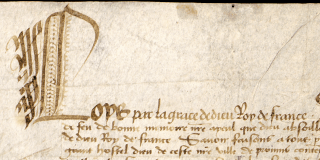 Loys par la grace de dieu Roy de france
de feu de bonne memoire nre ayeul que dieu absoill
de dieu Roy de france Savoir faisons a tous
grant hostel dieu de ceste nre ville de